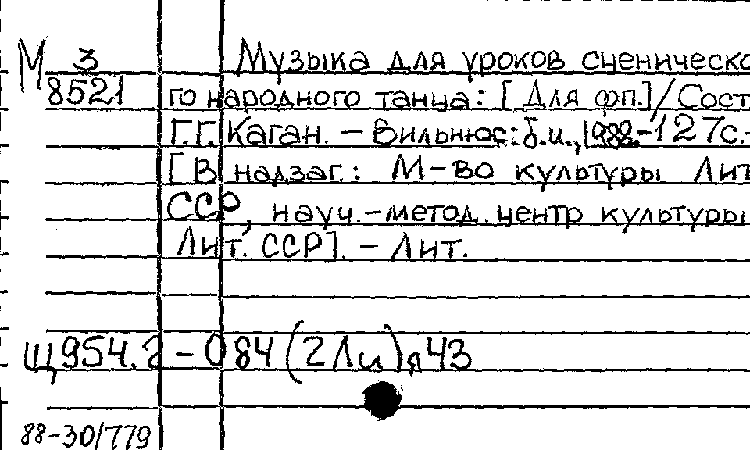 М 3 Музыка для уроков сценическо
8521 го народного танца: [Для фп.]/Сост
Г.Г. Каган. – Вильнюс: б.и., 1988.–127с.–
[В надзаг.: М-во культуры Лит
ССР, науч.-метод. центр культуры
Лит. ССР]. – Лит.
Щ954.2–084(2Ли)я43
88-30/779